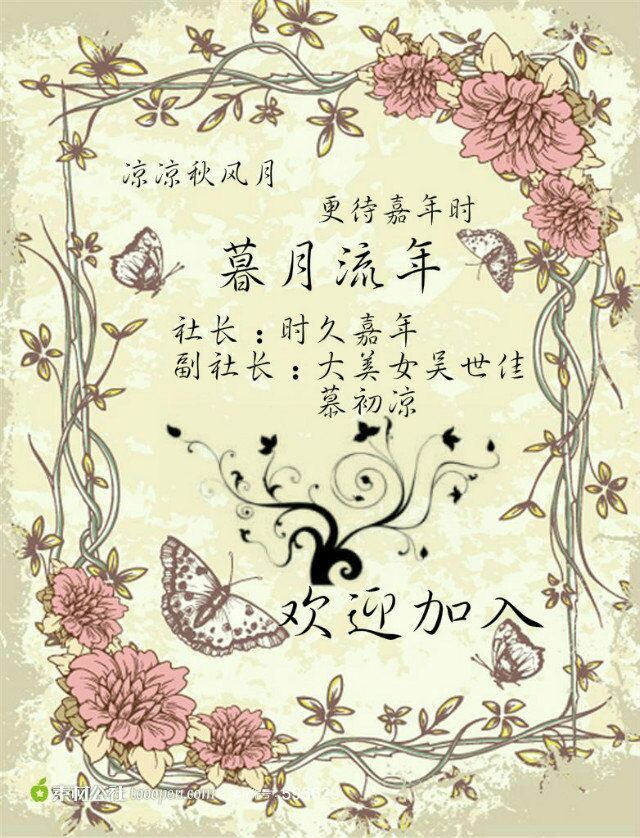 凉凉秋风月
更待嘉年时
暮月流年
社长：时久嘉年
副社长：大美女吴世佳
慕初凉
欢迎加入
素材公社 tooopen.com